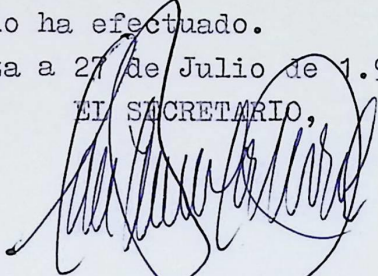 o ha efectuado.
za a 27 de Julio de 1.9
EL SECRETARIO,